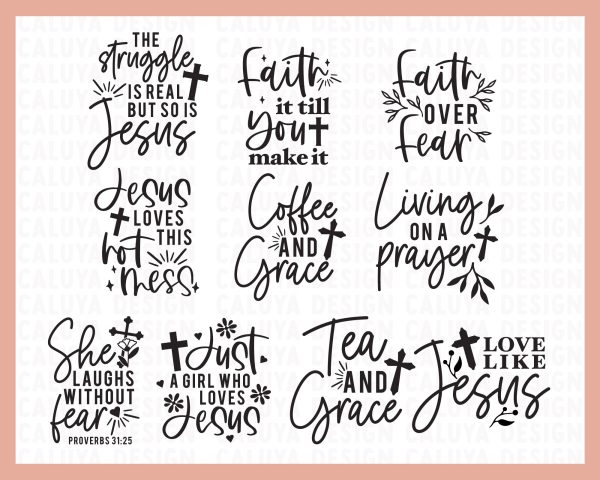 THE
struggle
IS REAL
BUT SO IS
Jesus
Faith
it till
You
make it
Faith
OVER
fear
Jesus
LOVES
THIS
hot
mess
Coffee
AND
Grace
Living
ON A
prayer
She
LAUGHS
WITHOUT
fear
PROVERBS 31:25
Just
A GIRL WHO
LOVES
Jesus
Tea
AND
Grace
LOVE
LIKE
Jesus
CALUYA DESIGN